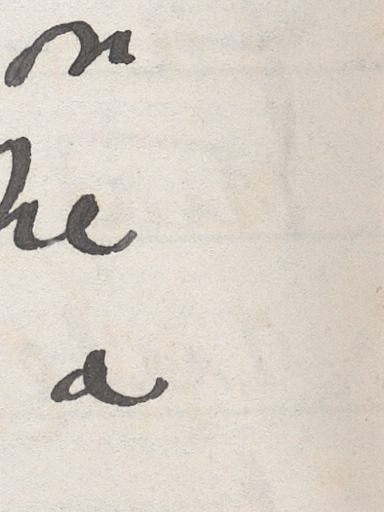 on
he
a